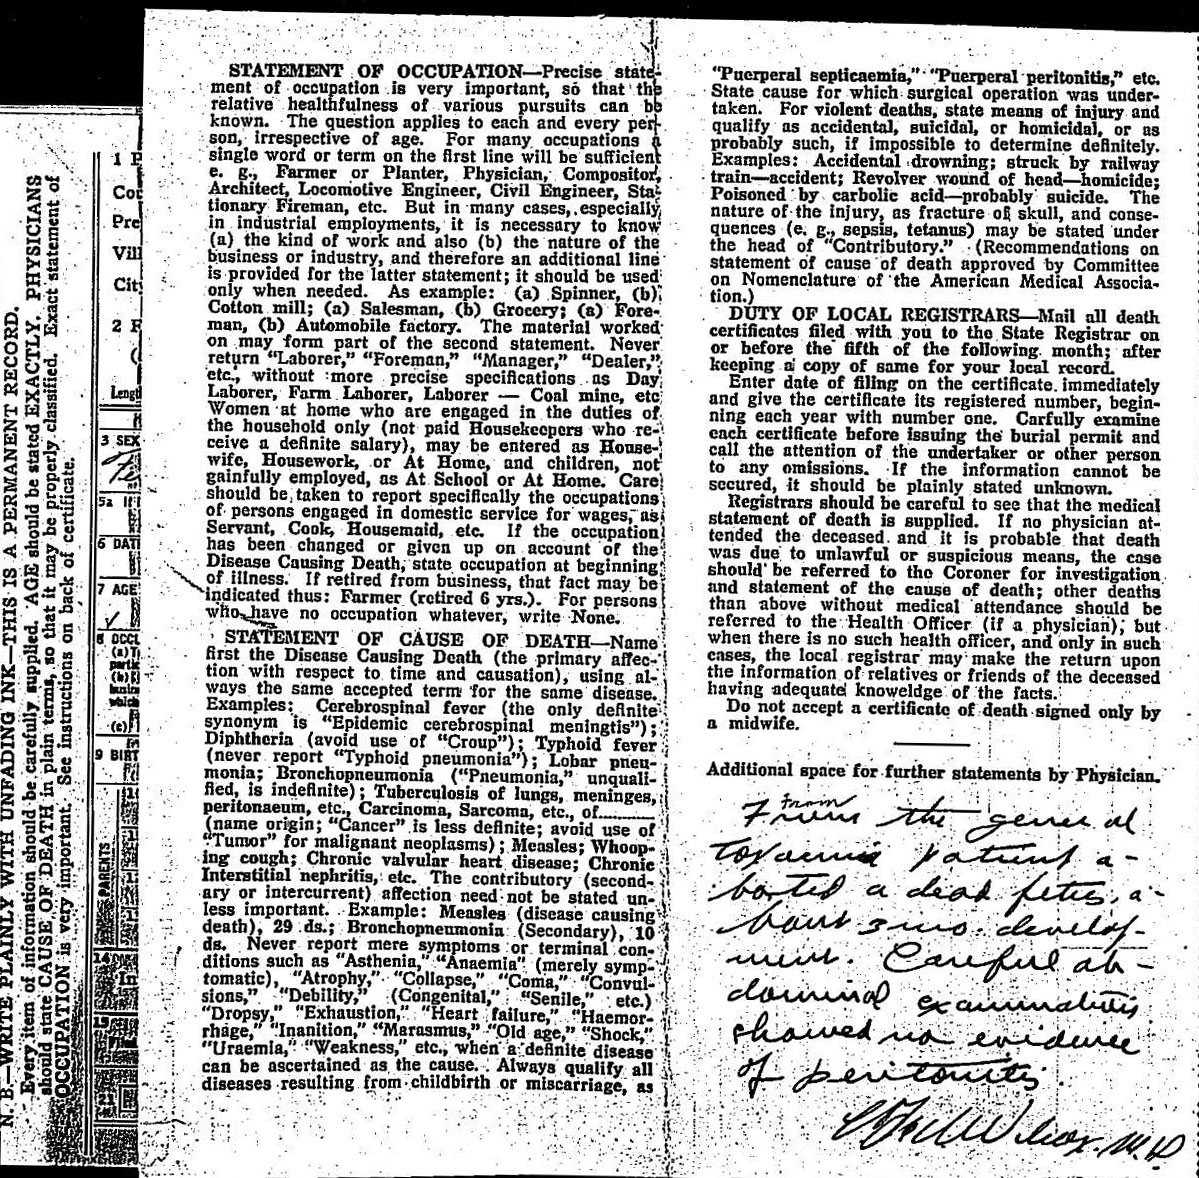 N. B.—WRITE PLAINLY WITH UNFADING INK—THIS IS A PERMANENT RECORD.
Every item of information should be carefully supplied. AGE should be stated EXACTLY. PHYSICIANS
should state CAUSE OF DEATH in plain terms, so that it may be properly classified. Exact statement of
OCCUPATION is very important. See instructions on back of certificate.
1 P
Cou
Pre
Vill
City
2 F
(
Lengt
3 SEX
Fe
5a If
6 DATE
7 AGE
8 OCCU
(a) T
(b)
which
(c)
9 BIRT
PARENTS
14
In
15
STATEMENT OF OCCUPATION—Precise state-
ment of occupation is very important, so that the
relative healthfulness of various pursuits can be
known. The question applies to each and every per-
son, irrespective of age. For many occupations a
single word or term on the first line will be sufficient
e. g., Farmer or Planter, Physician, Compositor,
Architect, Locomotive Engineer, Civil Engineer, Sta-
tionary Fireman, etc. But in many cases, especially
in industrial employments, it is necessary to know
(a) the kind of work and also (b) the nature of the
business or industry, and therefore an additional line
is provided for the latter statement; it should be used
only when needed. As example: (a) Spinner, (b)
Cotton mill; (a) Salesman, (b) Grocery; (a) Fore-
man, (b) Automobile factory. The material worked
on may form part of the second statement. Never
return "Laborer," "Foreman," "Manager," "Dealer,"
etc., without more precise specifications as Day
Laborer, Farm Laborer, Laborer — Coal mine, etc
Women at home who are engaged in the duties of
the household only (not paid Housekeepers who re-
ceive a definite salary), may be entered as House-
wife, Housework, or At Home, and children, not
gainfully employed, as At School or At Home. Care
should be taken to report specifically the occupations
of persons engaged in domestic service for wages, as
Servant, Cook, Housemaid, etc. If the occupation
has been changed or given up on account of the
Disease Causing Death, state occupation at beginning
of illness. If retired from business, that fact may be
indicated thus: Farmer (retired 6 yrs.). For persons
who have no occupation whatever, write None.
STATEMENT OF CAUSE OF DEATH—Name
first the Disease Causing Death (the primary affec-
tion with respect to time and causation), using al-
ways the same accepted term for the same disease.
Examples: Cerebrospinal fever (the only definite
synonym is "Epidemic cerebrospinal meningtis");
Diphtheria (avoid use of "Croup"); Typhoid fever
(never report "Typhoid pneumonia"); Lobar pneu-
monia; Bronchopneumonia ("Pneumonia," unquali-
fied, is indefinite); Tuberculosis of lungs, meninges,
peritonaeum, etc., Carcinoma, Sarcoma, etc., of..........
(name origin; "Cancer" is less definite; avoid use of
"Tumor" for malignant neoplasms); Measles; Whoop-
ing cough; Chronic valvular heart disease; Chronic
Interstitial nephritis, etc. The contributory (second-
ary or intercurrent) affection need not be stated un-
less important. Example: Measles (disease causing
death), 29 ds.; Bronchopneumonia (Secondary), 10
ds. Never report mere symptoms or terminal con-
ditions such as "Asthenia," "Anaemia" (merely symp-
tomatic), "Atrophy," "Collapse," "Coma," "Convul-
sions," "Debility," (Congenital," "Senile," etc.)
"Dropsy," "Exhaustion," "Heart failure," "Haemor-
rhage," "Inanition," "Marasmus," "Old age," "Shock,"
"Uraemia," "Weakness," etc., when a definite disease
can be ascertained as the cause. Always qualify all
diseases resulting from childbirth or miscarriage, as
"Puerperal septicaemia," "Puerperal peritonitis," etc.
State cause for which surgical operation was under-
taken. For violent deaths, state means of injury and
qualify as accidental, suicidal, or homicidal, or as
probably such, if impossible to determine definitely.
Examples: Accidental drowning; struck by railway
train—accident; Revolver wound of head—homicide;
Poisoned by carbolic acid—probably suicide. The
nature of the injury, as fracture of skull, and conse-
quences (e. g., sepsis, tetanus) may be stated under
the head of "Contributory." (Recommendations on
statement of cause of death approved by Committee
on Nomenclature of the American Medical Associa-
tion.)
DUTY OF LOCAL REGISTRARS—Mail all death
certificates filed with you to the State Registrar on
or before the fifth of the following month; after
keeping a copy of same for your local record.
Enter date of filing on the certificate immediately
and give the certificate its registered number, begin-
ning each year with number one. Carfully examine
each certificate before issuing the burial permit and
call the attention of the undertaker or other person
to any omissions. If the information cannot be
secured, it should be plainly stated unknown.
Registrars should be careful to see that the medical
statement of death is supplied. If no physician at-
tended the deceased and it is probable that death
was due to unlawful or suspicious means, the case
should be referred to the Coroner for investigation
and statement of the cause of death; other deaths
than above without medical attendance should be
referred to the Health Officer (if a physician), but
when there is no such health officer, and only in such
cases, the local registrar may make the return upon
the information of relatives or friends of the deceased
having adequate knoweldge of the facts.
Do not accept a certificate of death signed only by
a midwife.
Additional space for further statements by Physician.
From
From the general
toxaemia patient a-
borted a dead fetus, a-
bout 3 mo. develop-
ment. Careful ab-
dominal examination
showed no evidence
of peritonitis.
Wilcox. M. D.